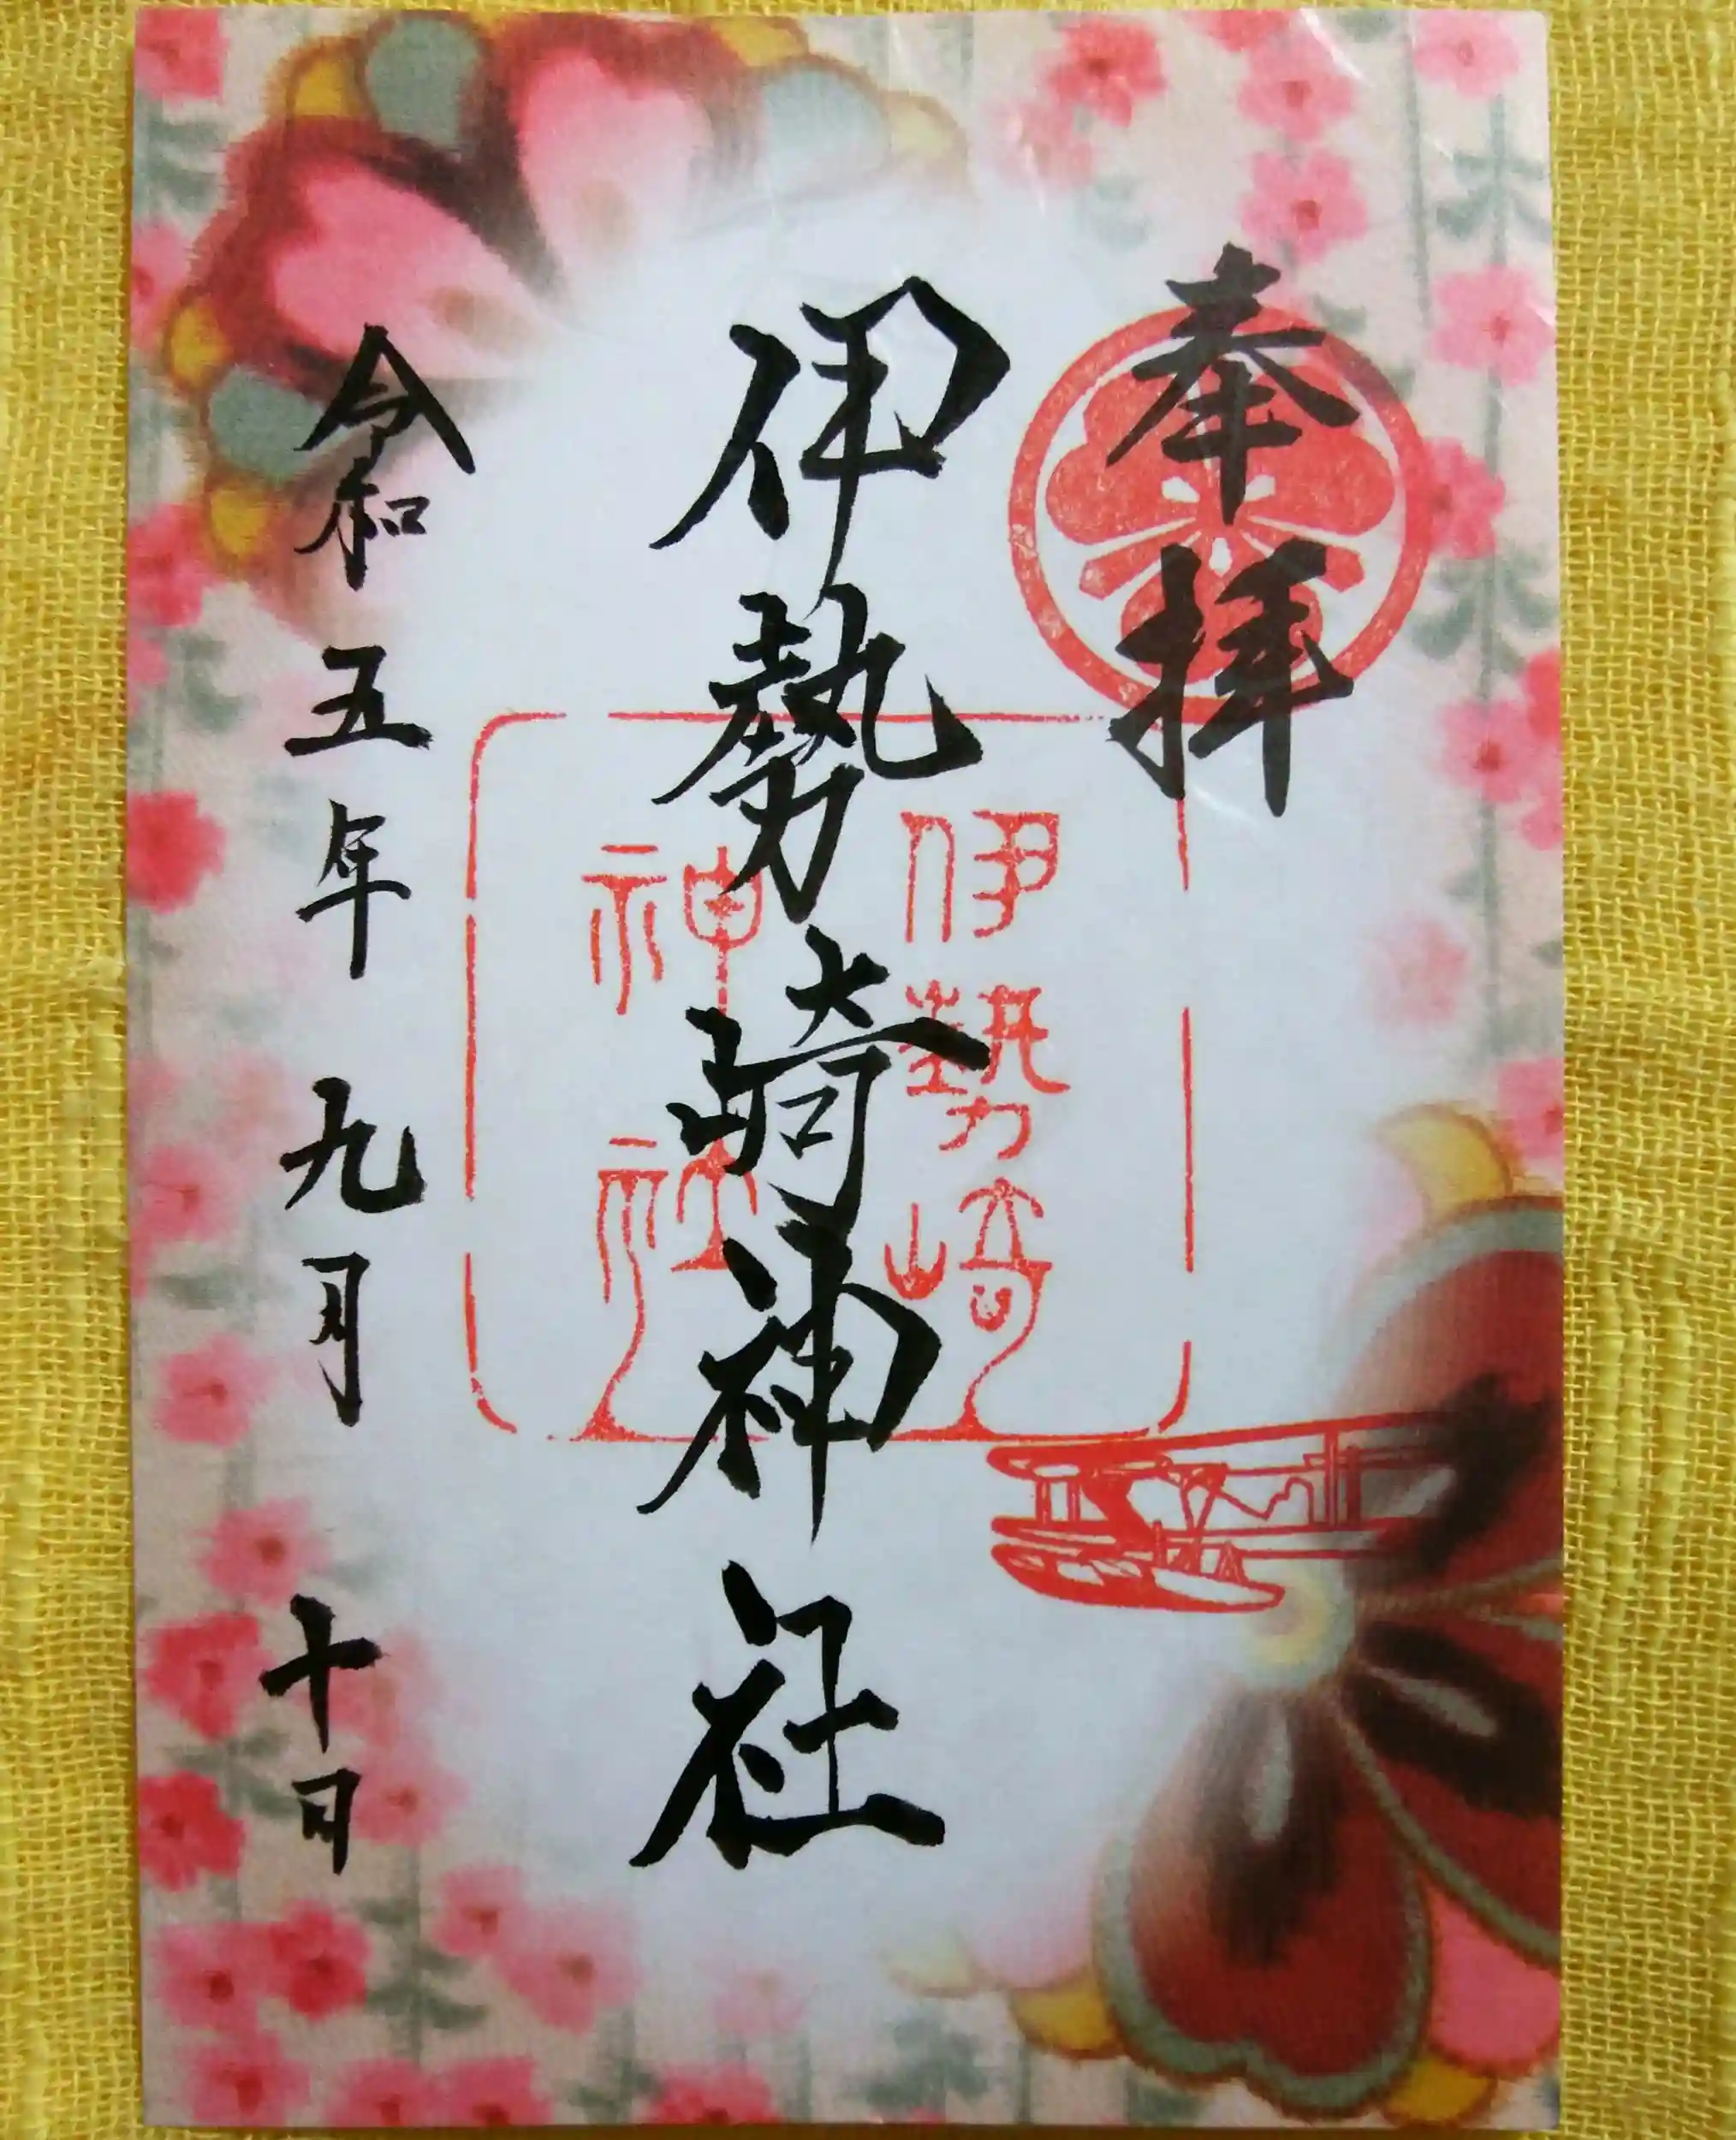 奉拝
伊勢崎神社
伊勢崎
神社
令和五年九月十日